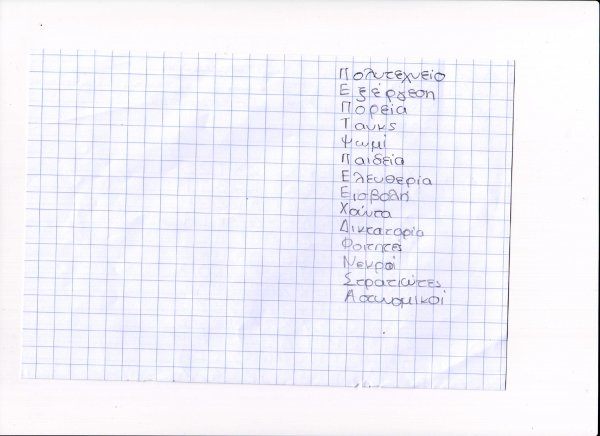 Πολυτεχνείο
Εξέργεση
Πορεία
Τανκς
Ψωμί
Παιδεία
Ελευθερία
Εισβολή
Χούντα
Δικτατορία
Φοιτητές
Νεκροί
Στρατιώτες
Αστυνομικοί